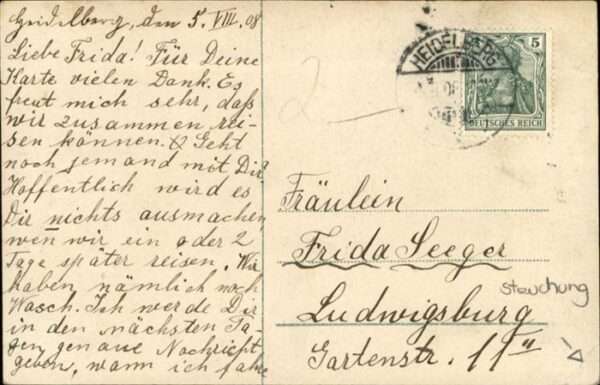 Heidelberg, den 5. VIII. 08
Liebe Frida! Für Deine
Karte vielen Dank. Es
freut mich sehr, daß
wir zusammen rei-
sen können. Geht
noch jemand mit Dir?
Hoffentlich wird es
Dir nichts ausmachen
wen wir ein oder 2
Tage später reisen. Wir
haben nämlich noch
Wasch. Ich werde Dir
in den nächsten Ta-
gen genaue Nachricht
geben, wann ich fahre
2
HEIDELBERG
5
DEUTSCHES REICH
Fräulein
Frida Seeger
Stauchung
Ludwigsburg
Gartenstr. 11